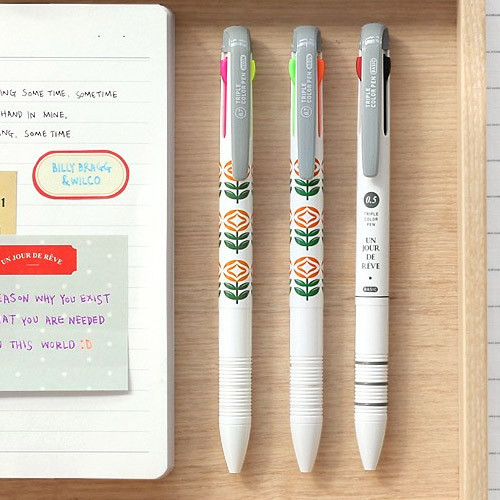 ING SOME TIME, SOMETIME
HAND IN MINE,
NG, SOME TIME
BILLY BRAGG
& WILCO
1
UN JOUR DE RÊVE
EASON WHY YOU EXIST
AT YOU ARE NEEDED
THIS WORLD :D
TRIPLE
COLOR PEN
TRIPLE
COLOR PEN
TRIPLE
COLOR PEN BASIC
0.5
TRIPLE
COLOR
PEN
UN
JOUR
DE
RÊVE
BASIC